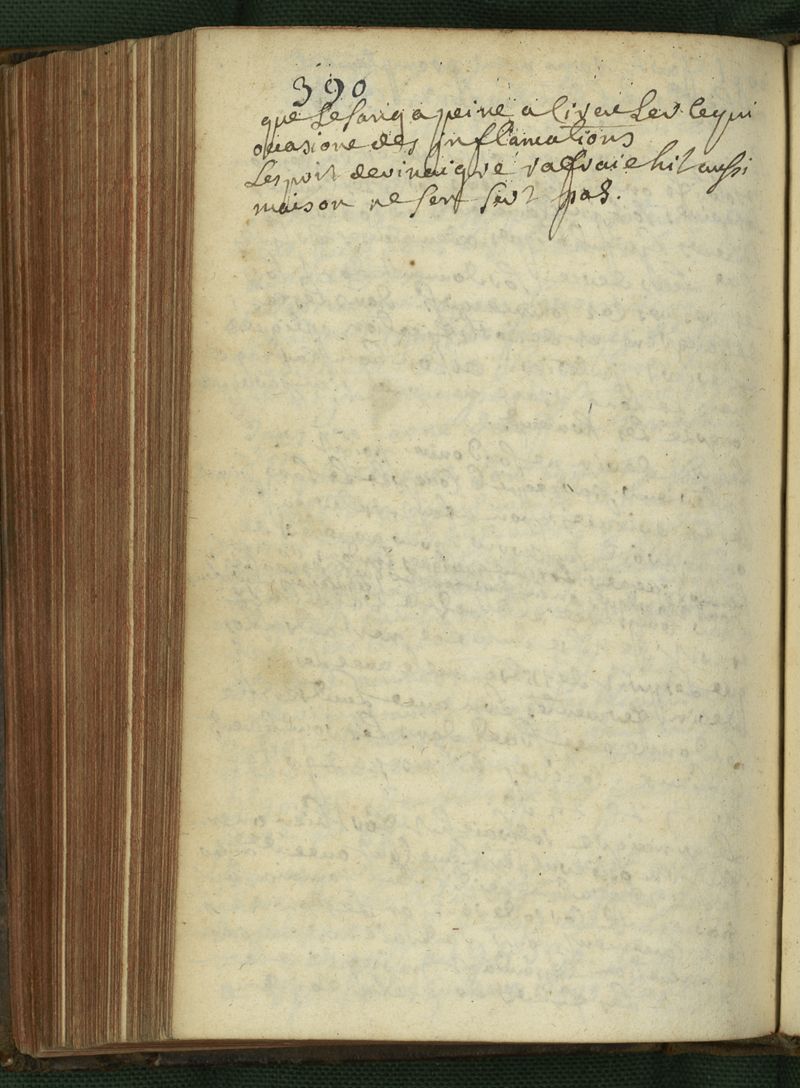 390
que le sang a peine a livrer ce qui
ocasione des inflamations
Lesprit devinaigre rafraichit aussi
maison ne sen sert pas.